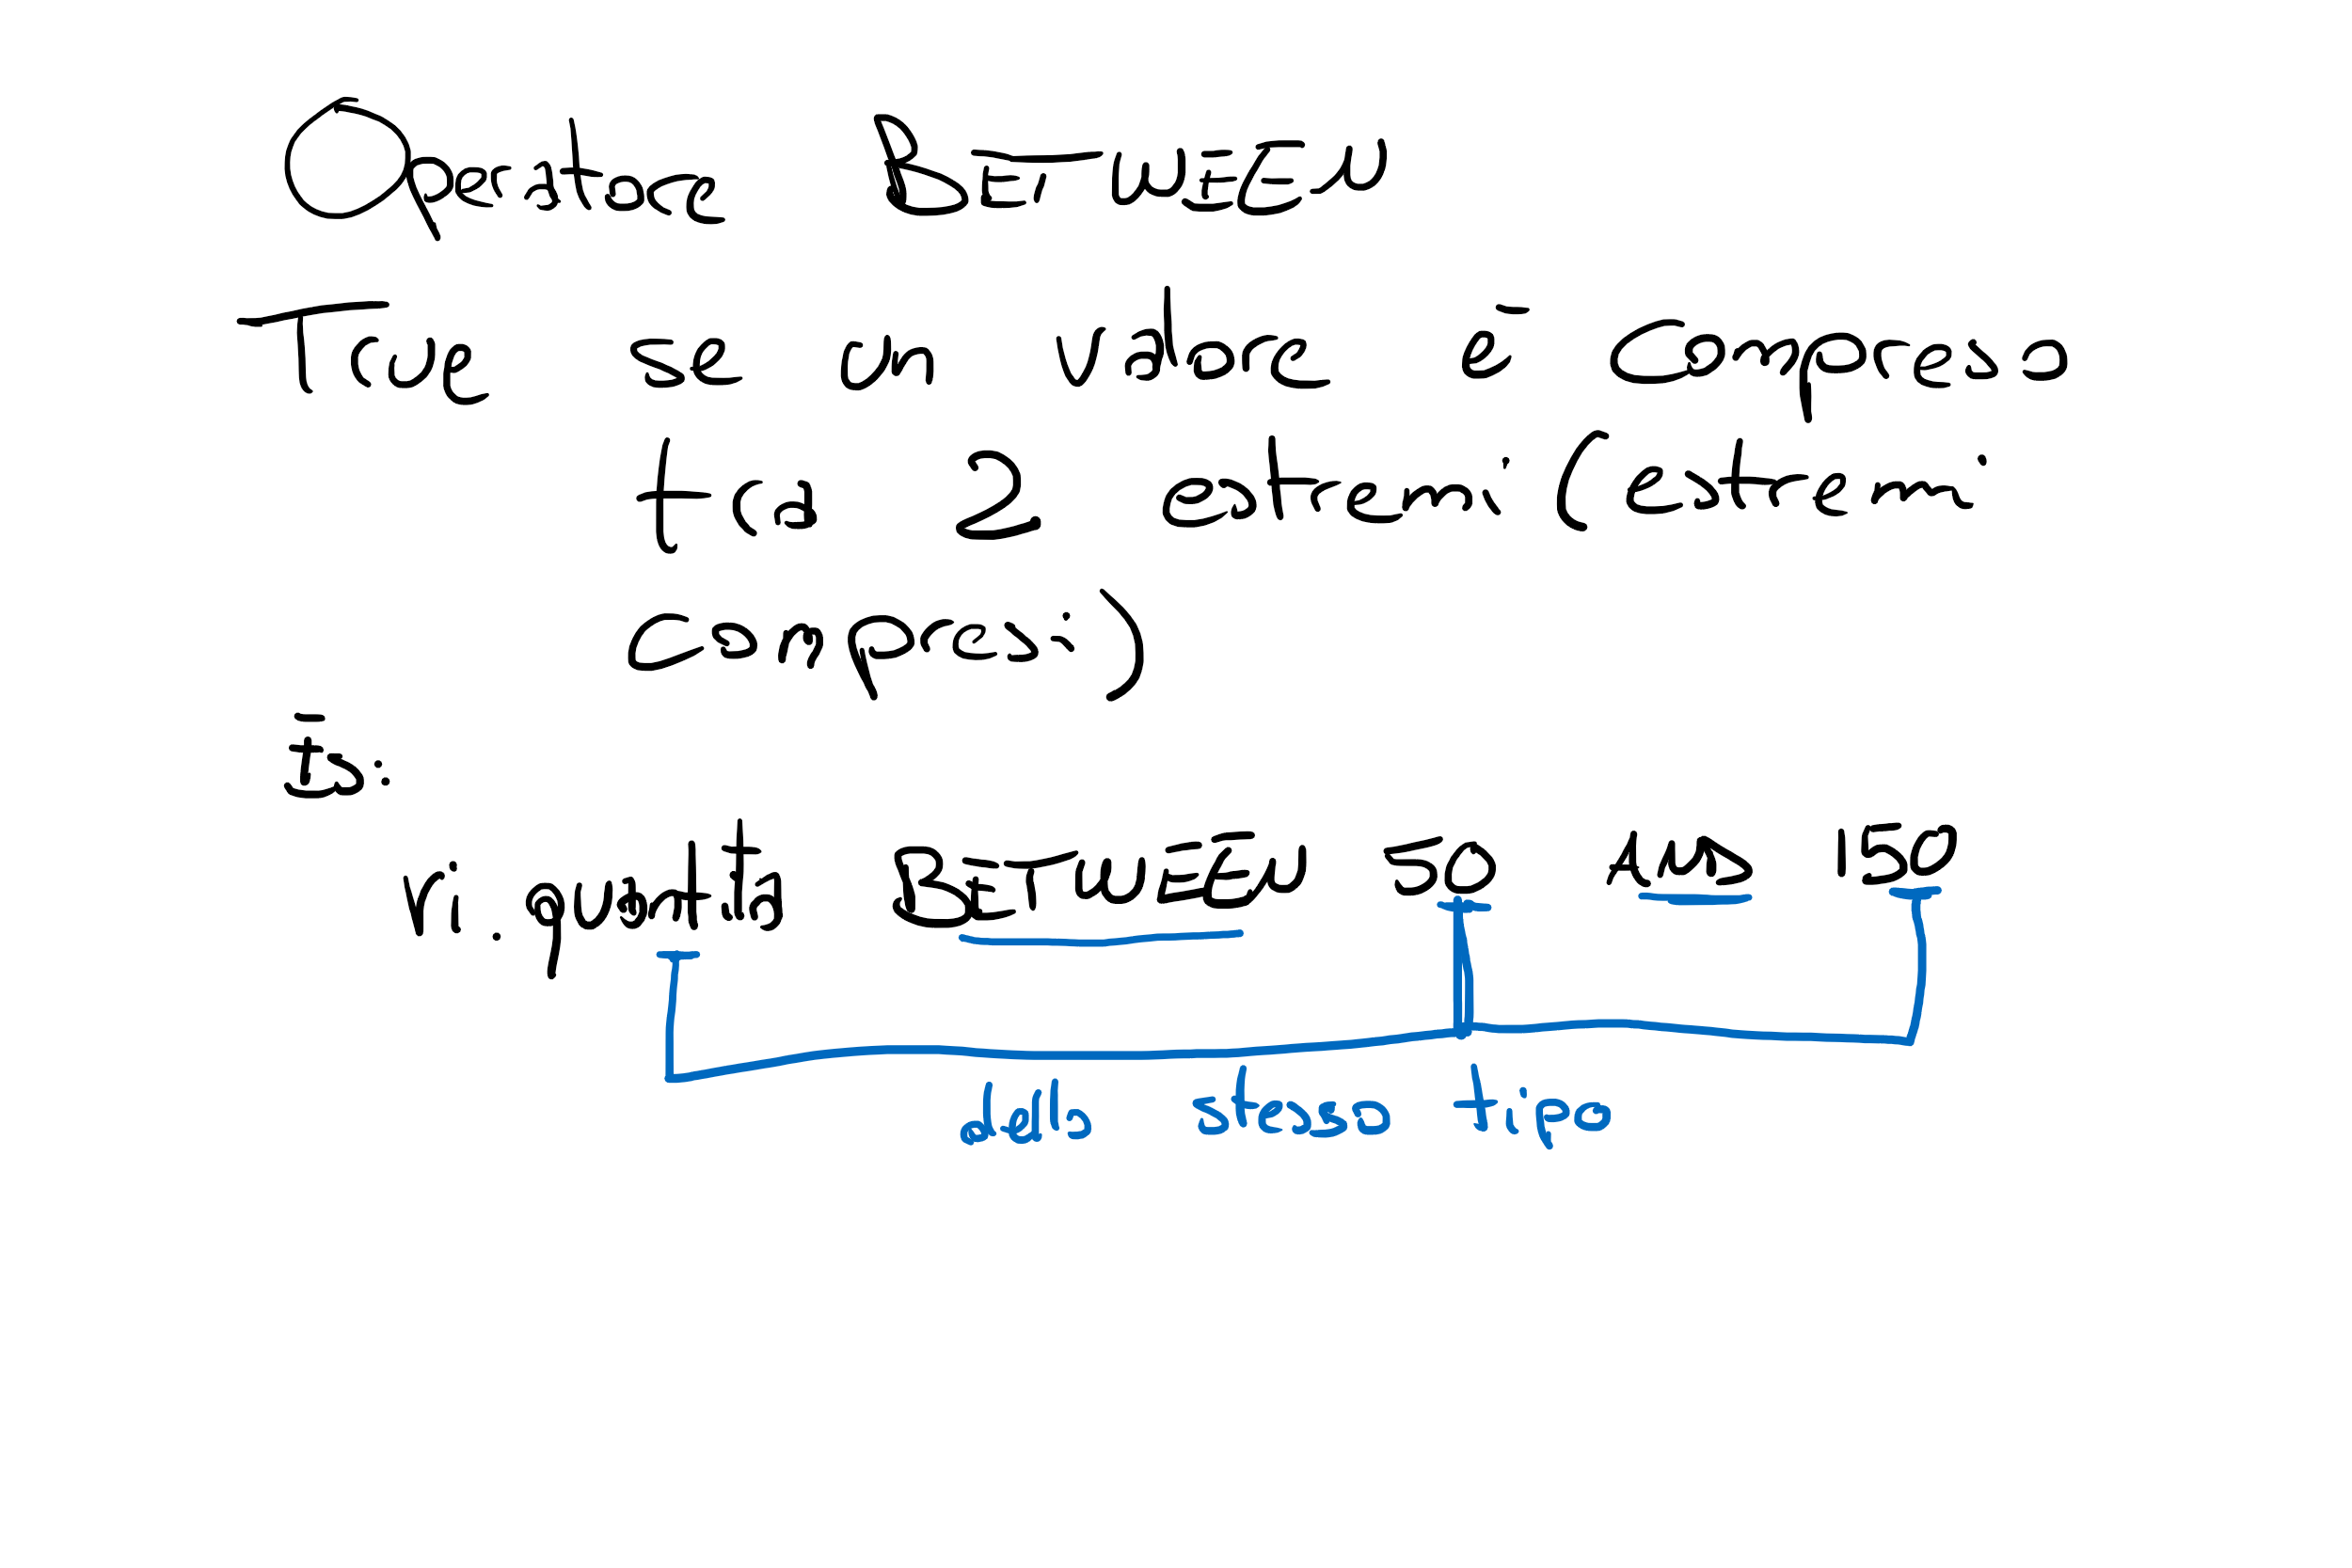 Operatore BETWEEN
True se un valore è compreso
tra 2 estremi (estremi
compresi)
Es:
ri.quantita BETWEEN 50 AND 150
dello stesso tipo